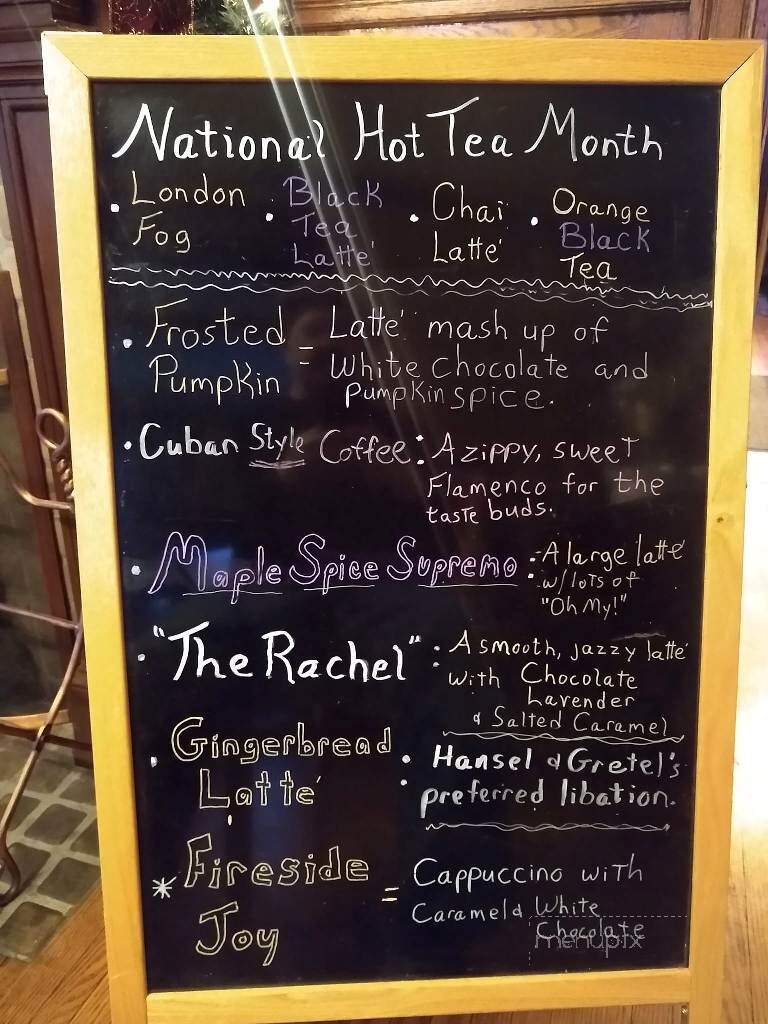 National Hot Tea Month
• London Fog • Black Tea Latté • Chai Latté • Orange Black Tea
• Frosted Pumpkin = Latté mash up of
White Chocolate and
Pumpkin spice.
• Cuban Style Coffee: A zippy, sweet
Flamenco for the
taste buds.
• Maple Spice Supremo : A large latté
w/lots of
"Oh My!"
• "The Rachel" : A smooth, jazzy latté
with Chocolate
Lavender
& Salted Caramel
• Gingerbread Latté : Hansel & Gretel's
preferred libation.
* Fireside Joy = Cappuccino with
Caramel & White
Chocolate
menupix